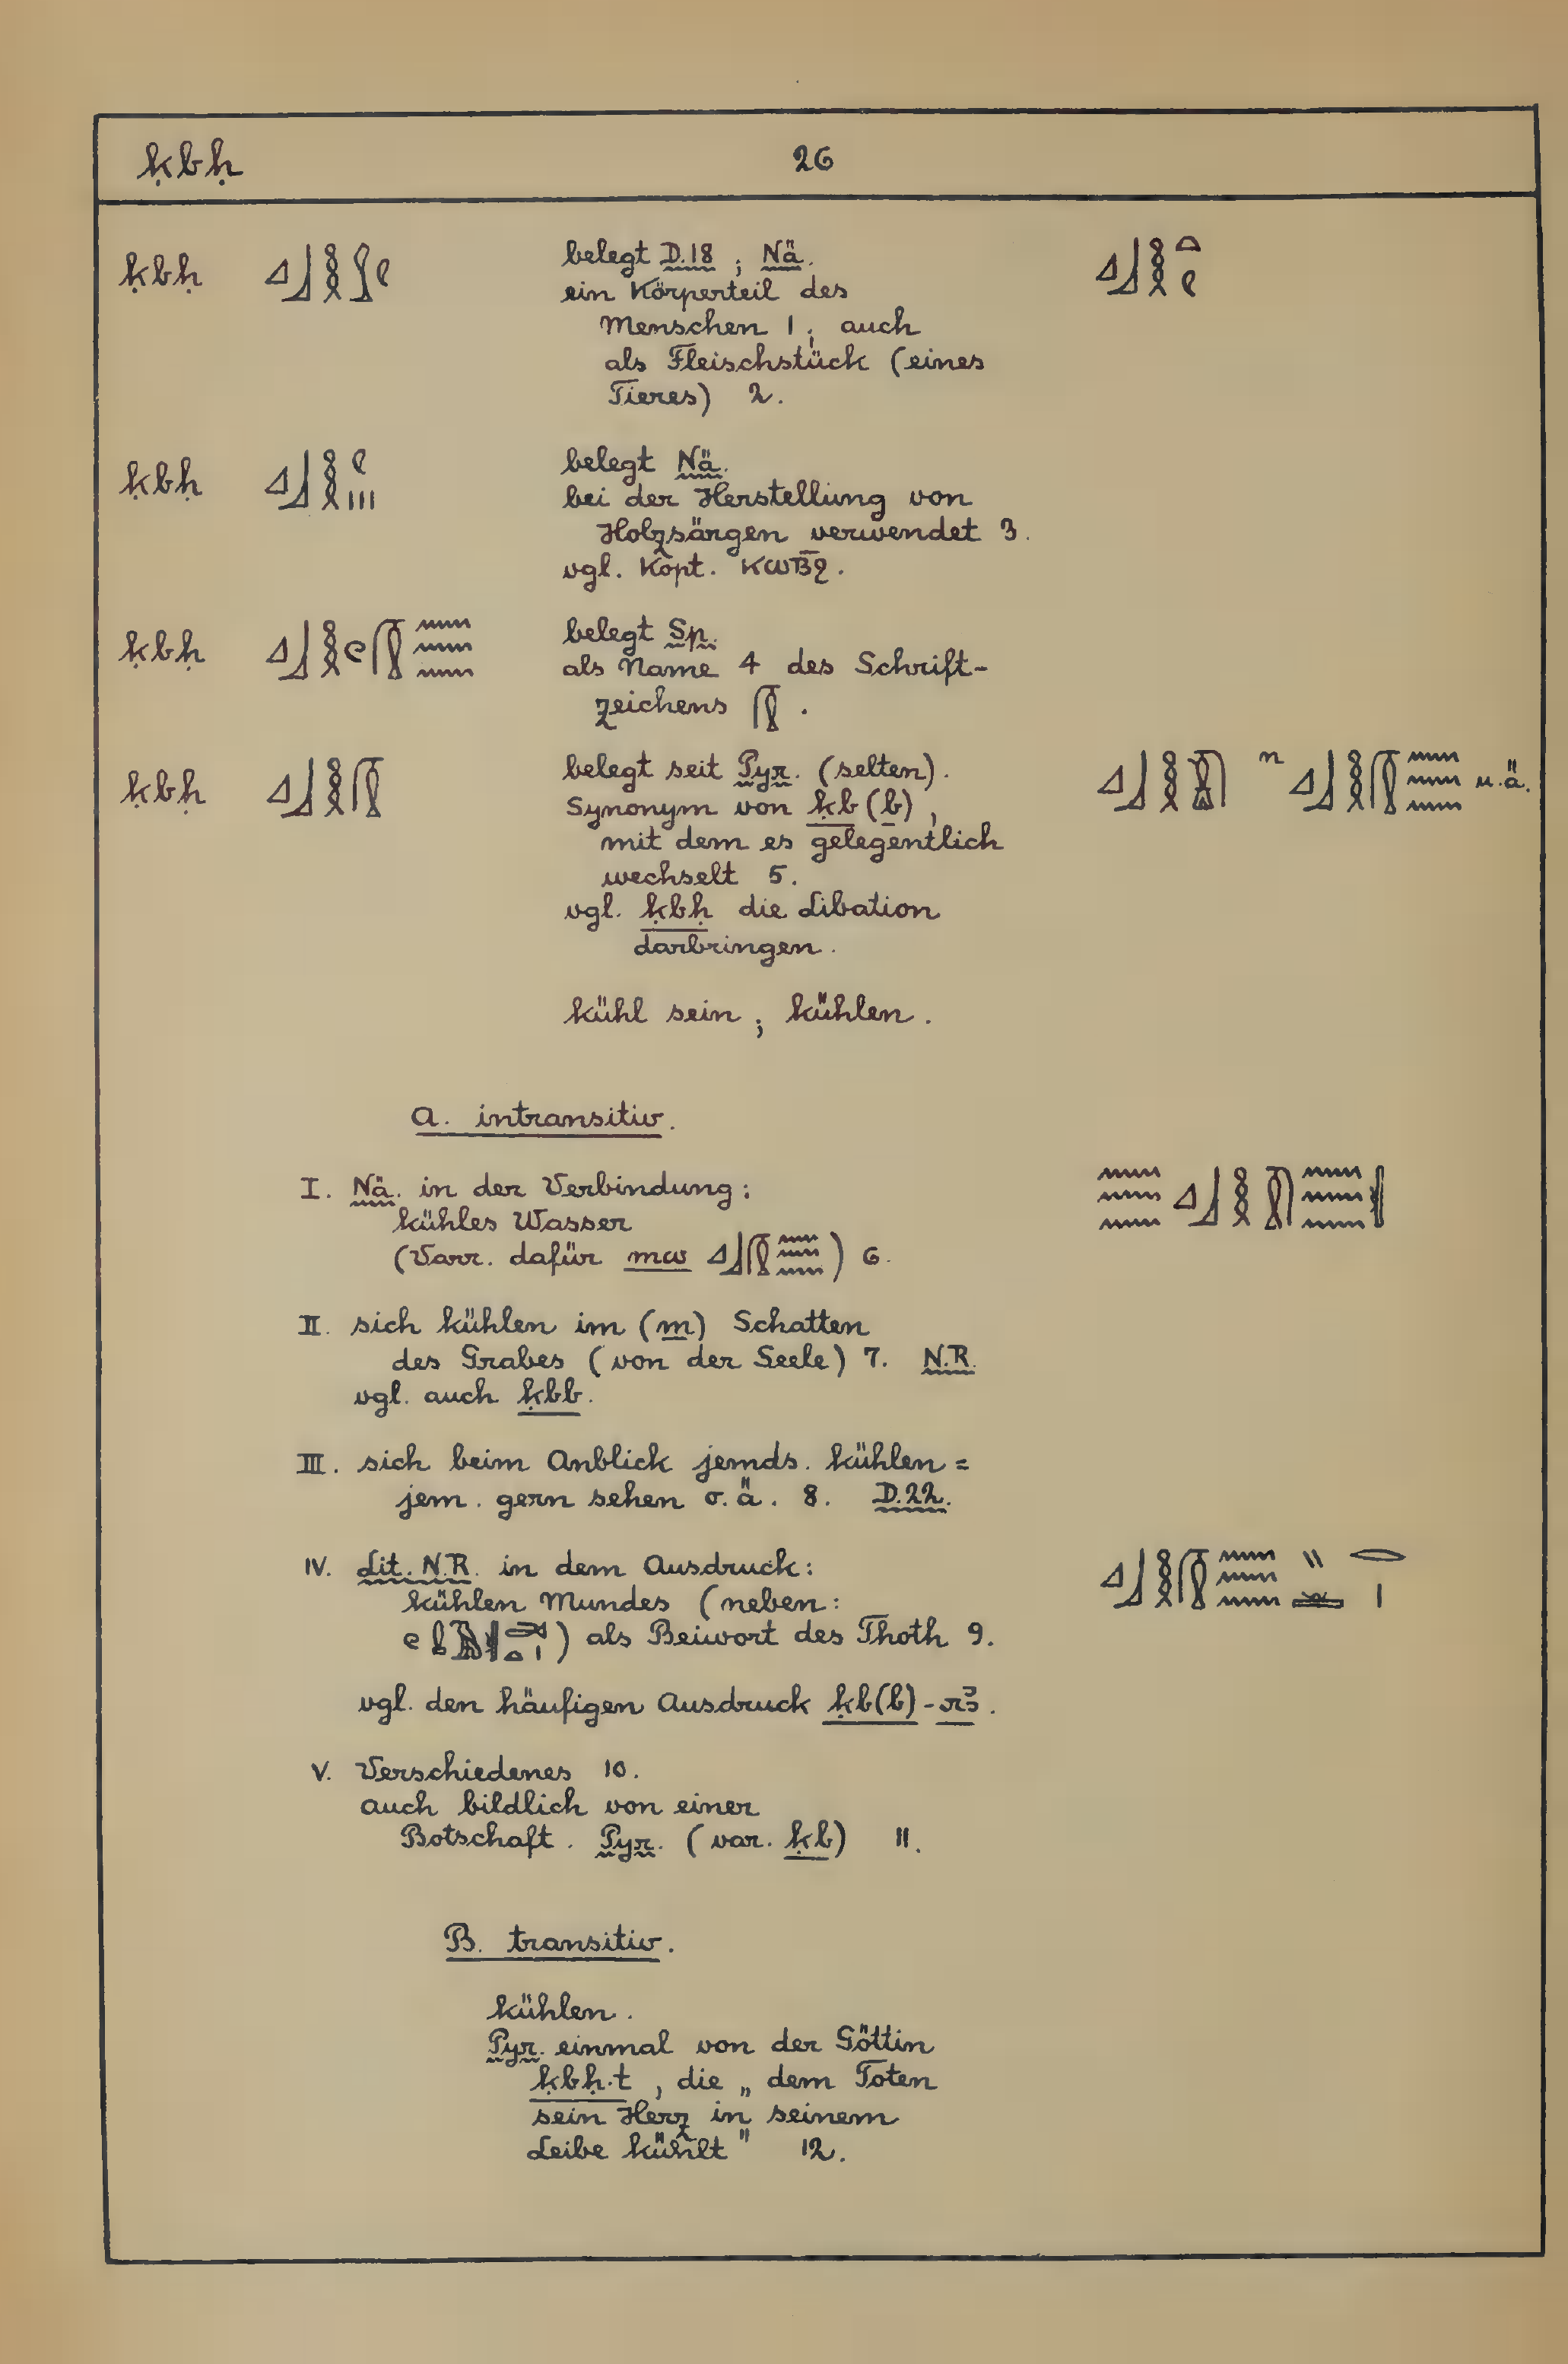 ḳbḥ 26
ḳbḥ belegt D.18 ; Nä.
ein Körperteil des
Menschen 1 ; auch
als Fleischstück (eines
Tieres) 2.
ḳbḥ belegt Nä.
bei der Herstellung von
Holzsärgen verwendet 3.
vgl. Kopt. ⲕⲱⲃ̅ϩ.
ḳbḥ belegt Sp.
als Name 4 des Schrift-
zeichens 𓏂 .
ḳbḥ belegt seit Pyr. (selten). u.ä.
Synonym von ḳb(b) ,
mit dem es gelegentlich
wechselt 5.
vgl. ḳbḥ die Libation
darbringen.
kühl sein ; kühlen.
A. intransitiv.
I. Nä. in der Verbindung:
kühles Wasser
(Varr. dafür mw ) 6.
II. sich kühlen im (m) Schatten
des Grabes (von der Seele) 7. N.R.
vgl. auch ḳbb.
III. sich beim Anblick jemds. kühlen =
jem. gern sehen o.ä. 8. D.22.
IV. Lit. N.R. in dem Ausdruck:
kühlen Mundes (neben:
) als Beiwort des Thoth 9.
vgl. den häufigen Ausdruck ḳb(b)-rꜣ.
V. Verschiedenes 10.
auch bildlich von einer
Botschaft. Pyr. (var. ḳb) 11.
B. transitiv.
kühlen.
Pyr. einmal von der Göttin
ḳbḥ.t , die „dem Toten
sein Herz in seinem
Leibe kühlt" 12.